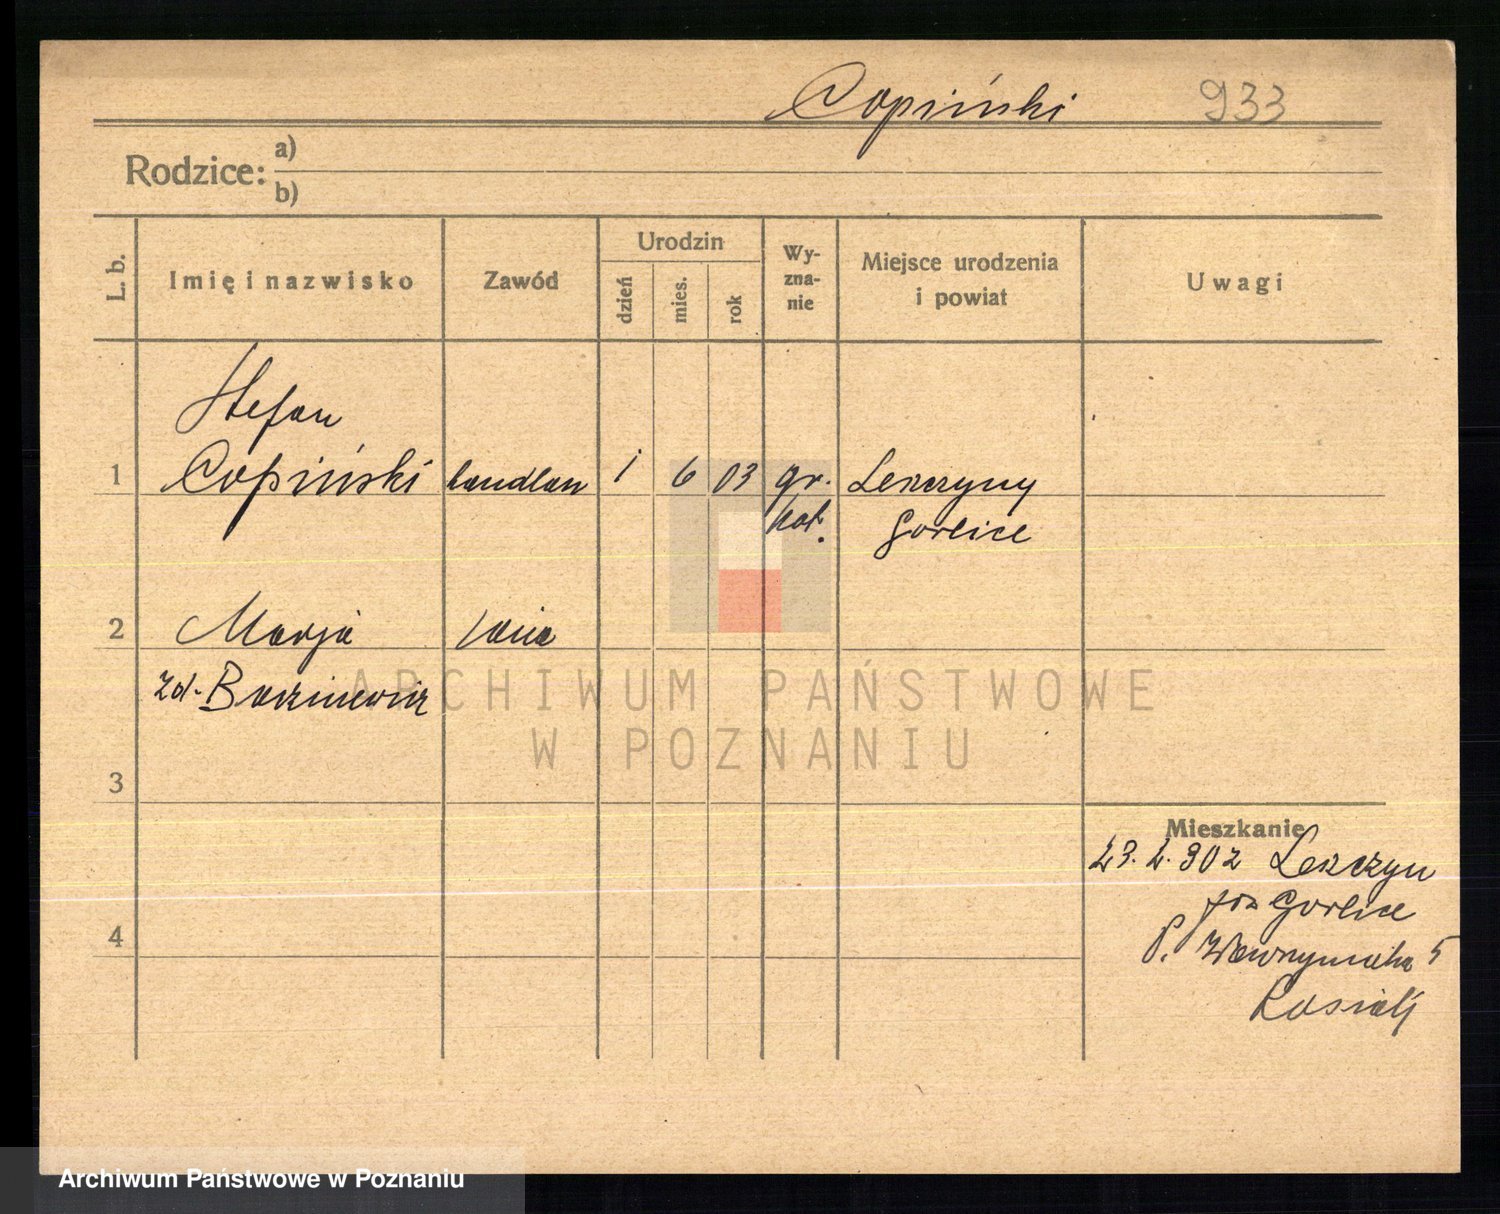 Copiński 933
Rodzice: a)
b)
L. b.
Imię i nazwisko
Zawód
Urodzin
dzień
mies.
rok
Wy-
zna-
nie
Miejsce urodzenia
i powiat
Uwagi
Stefan
1 Copiński handlarz 1 6 03 gr. Leszczyny
kat. Gorlice
2 Marja
zd.
3
4
Mieszkanie
23. 2. 30 z Leszczyn
Gorlice
P. Wawrzyniaka 5
ARCHIWUM PAŃSTWOWE
W POZNANIU
Archiwum Państwowe w Poznaniu